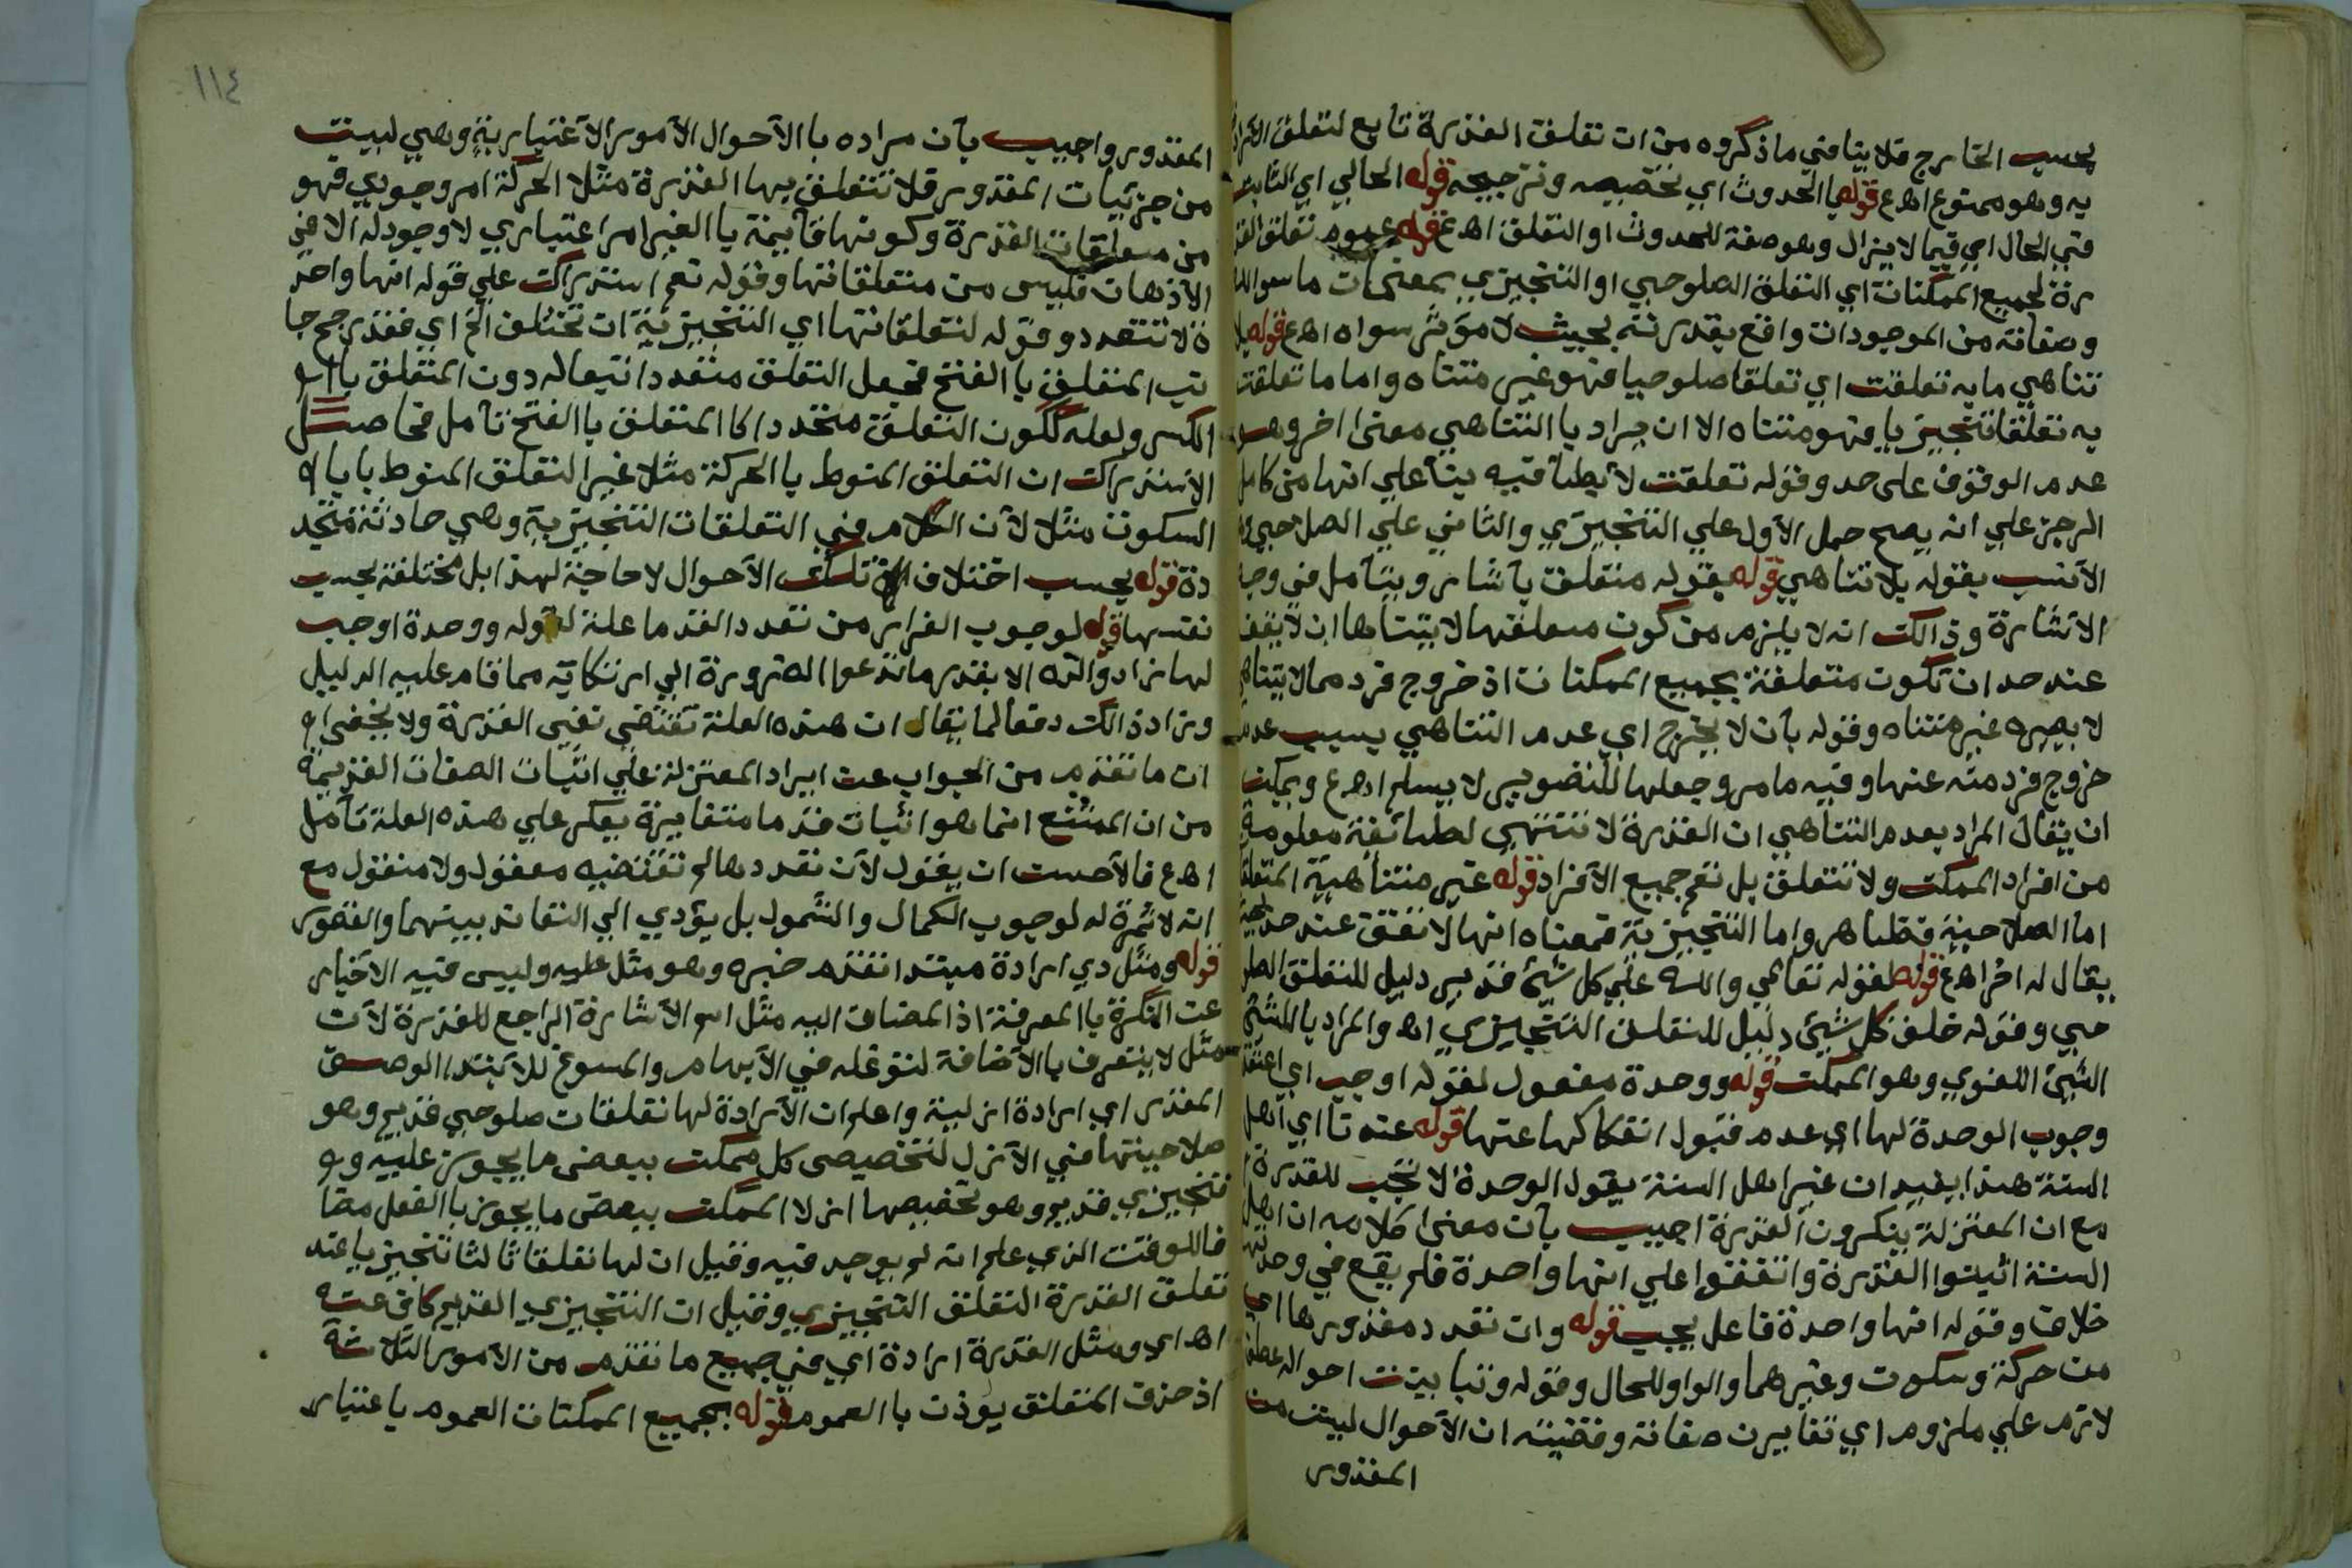 بحسب الخارج فلا ينافي ما ذكروه من ان تعلق القدرة تابع لتعلق الارادة
به وهو ممنوع اهـ ع قوله الحدوث اي تخصيصه وترجيحه قوله الحالي اي الثابت
في الحال اي فيما لا يزال وهو صفة للحدوث او التعلق اهـ ع قوله عموم تعلق القد
رة لجميع الممكنات اي التعلق الصلوحي او التنجيزي بمعني ان ما سوا الله
وصفاته من الموجودات واقع بقدرته بحيث لا مؤثر سواه اهـ ع قوله بلا
تناهي ما به تعلقت اي تعلقا صلوحيا فهو غير متناه واما ما تعلقت
به تعلقا تنجيزيا فهو متناه الا ان يراد با التناهي معنى اخر وهو
عدم الوقوف على حد وقوله تعلقت لا يطأ فيه بنآ علي انها من كامل
الرجز علي انه يصح حمل الآول علي التنجيزي والثاني علي الصلاحي
الآنسب بقوله بلا تناهي قوله بقوله متعلق بآشار ويتآمل في وجه
الاشارة وذالك انه لا يلزم من كون متعلقها لا يتناها ان لا يقف
عند حد ان تكون متعلقة بجميع الممكنات اذ خروج فرد مما لا يتناهي
لا يصيره غير متناه وقوله بآن لا يخرج اي عدم التناهي بسبب عدم
خروج فرد منه عنها وفيه ما مر وجعلها للتصوير لا يسلم اهـ ع ويمكن
ان يقال المراد بعدم التناهي ان القدرة لا تنتهي لطائفة معلومة
من افراد الممكن ولا تتعلق بل تعم جميع الآفراد قوله غير متناهية المتعلقات
اما الصلاحية فظاهر واما التنجيزية فمعناه انها لا تقف عند حد بحيث
يقال له اخر اهـ ع قوله لقوله تعالي والله علي كل شئ قدير دليل للتعلق الصلو
حي وقوله خلق كل شيئ دليل للتعلق التنجيزي اهـ والمراد بالشئ
الشئ اللغوي وهو الممكن قوله ووحدة مفعول لقوله اوجب اي اعتقد
وجوب الوحدة لها اي عدم قبول انفكاكها عنها قوله عندنا اي اهل
السنة هذا يفيد ان غير اهل السنة يقول الوحدة لا تجب للقدرة
مع ان المعتزلة ينكرون القدرة اجيب بآن معنى كلامه ان اهل
السنة اثبتوا القدرة واتفقوا علي انها واحدة فلم يقع في وحدتها
خلاف وقوله انها واحدة فاعل يجب قوله وان تعدد مقدورها اي
من حركة وسكون وغيرهما والواو للحال وقوله وتباينت احواله عطف
لازم علي ملزوم اي تغايرت صفاته وقضيته ان الآحوال ليست من
المقدور
١١٤
المقدور واجيب بآن مراده با الآحوال الآمور الآعتبارية وهي ليست
من جزئيات المقدور فلا تتعلق بها القدرة مثلا الحركة امر وجودي فهو
من متعلقات القدرة وكونها قآئمة با الغير امر اعتباري لا وجود له الا في
الآذهان فليس من متعلقاتها وقوله نعم استدراك علي قوله انها واحد
ة لا تتعدد وقوله لتعلقاتها اي التنجيزية ان تختلف الخ اي فقد رجح جا
نب المتعلق با الفتح فجعل التعلق متعددا تبعا له دون المتعلق با
الكسر ولعله لكون التعلق متجددا كا المتعلق با الفتح تآمل فحاصل
الآستدراك ان التعلق المنوط با الحركة مثلا غير التعلق المنوط با
السكون مثلا لآن الكلام في التعلقات التنجيزية وهي حادثة متجد
دة قوله بحسب اختلاف تلك الآحوال لا حاجة لهذا بل مختلفة بحسب
نفسها قوله لوجوب الفرار من تعدد القدما علة لقوله ووحدة اوجب
لها زاد والله الا بقدر ما تدعوا الضرورة الي ارتكابه مما قام عليه الدليل
وزاد ذالك دفعا لما يقال ان هذه العلة تقتضي نفي القدرة ولا يخفى
ان ما تقدم من الجواب عن ايراد المعتزلة علي اثبات الصفات القديمة
من ان الممتنع انما هو اثبات قدما متغايرة يعكر علي هذه العلة تآمل
اهـ ع فالآحسن ان يقول لآن تعددها لم تقتضيه معقول ولا منقول مع
انه لا ثمرة له لوجوب الكمال والشمول بل يؤدي الي التعاند بينهما والقصور
قوله ومثل دي ارادة مبتدا تقدم خبره وهو مثل عليه وليس فيه الآخبار
عن النكرة با المعرفة اذ المضاف اليه مثل اسم الآشارة الراجع للقدرة لآن
مثل لا يتعرف با الآضافة لتوغله في الآبهام والمسوغ للآبتدا الوصف
المقدر اي ارادة ازلية واعلم ان الآرادة لها تعلقات صلوحي قديم وهو
صلاحيتها في الآزل لتخصيص كل ممكن ببعض ما يجوز عليه و
تنجيزي قديم وهو تخصيصها ازلا الممكن ببعض ما يجوز با الفعل مضا
فا للوقت الذي علم انه لم يوجد فيه وقيل ان لها تعلقا ثالثا تنجيزيا عند
تعلق القدرة التعلق التنجيزي وقيل ان التنجيزي القديم كاف عنه
اهـ اي ومثل القدرة ارادة اي في جميع ما تقدم من الآمور الثلاثة
اذ حذف المتعلق يؤذن با العموم قوله بجميع الممكنات العموم باعتبار